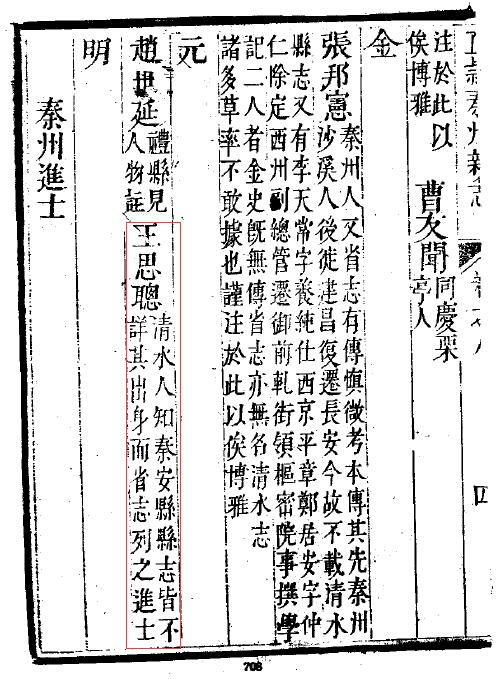 秦州新志
四
注於此以
俟博雅
曹友聞
同慶栗
亭人
金
張邦憲
秦州人又省志有傳慎微考本傳其先秦州
沙溪人後徙建昌復遷長安今故不載清水
縣志又有李天常字養純仕西京平章鄭居安字仲
仁除定西州副總管遷御前軋街領樞密院事撰學
記二人者金史旣無傳省志亦無名清水志
諸多草率不敢據也謹注於此以俟博雅
元
趙世延
禮縣見
人物註
王思聰
清水人知秦安縣縣志皆不
詳其出身而省志列之進士
明
秦州進士
708